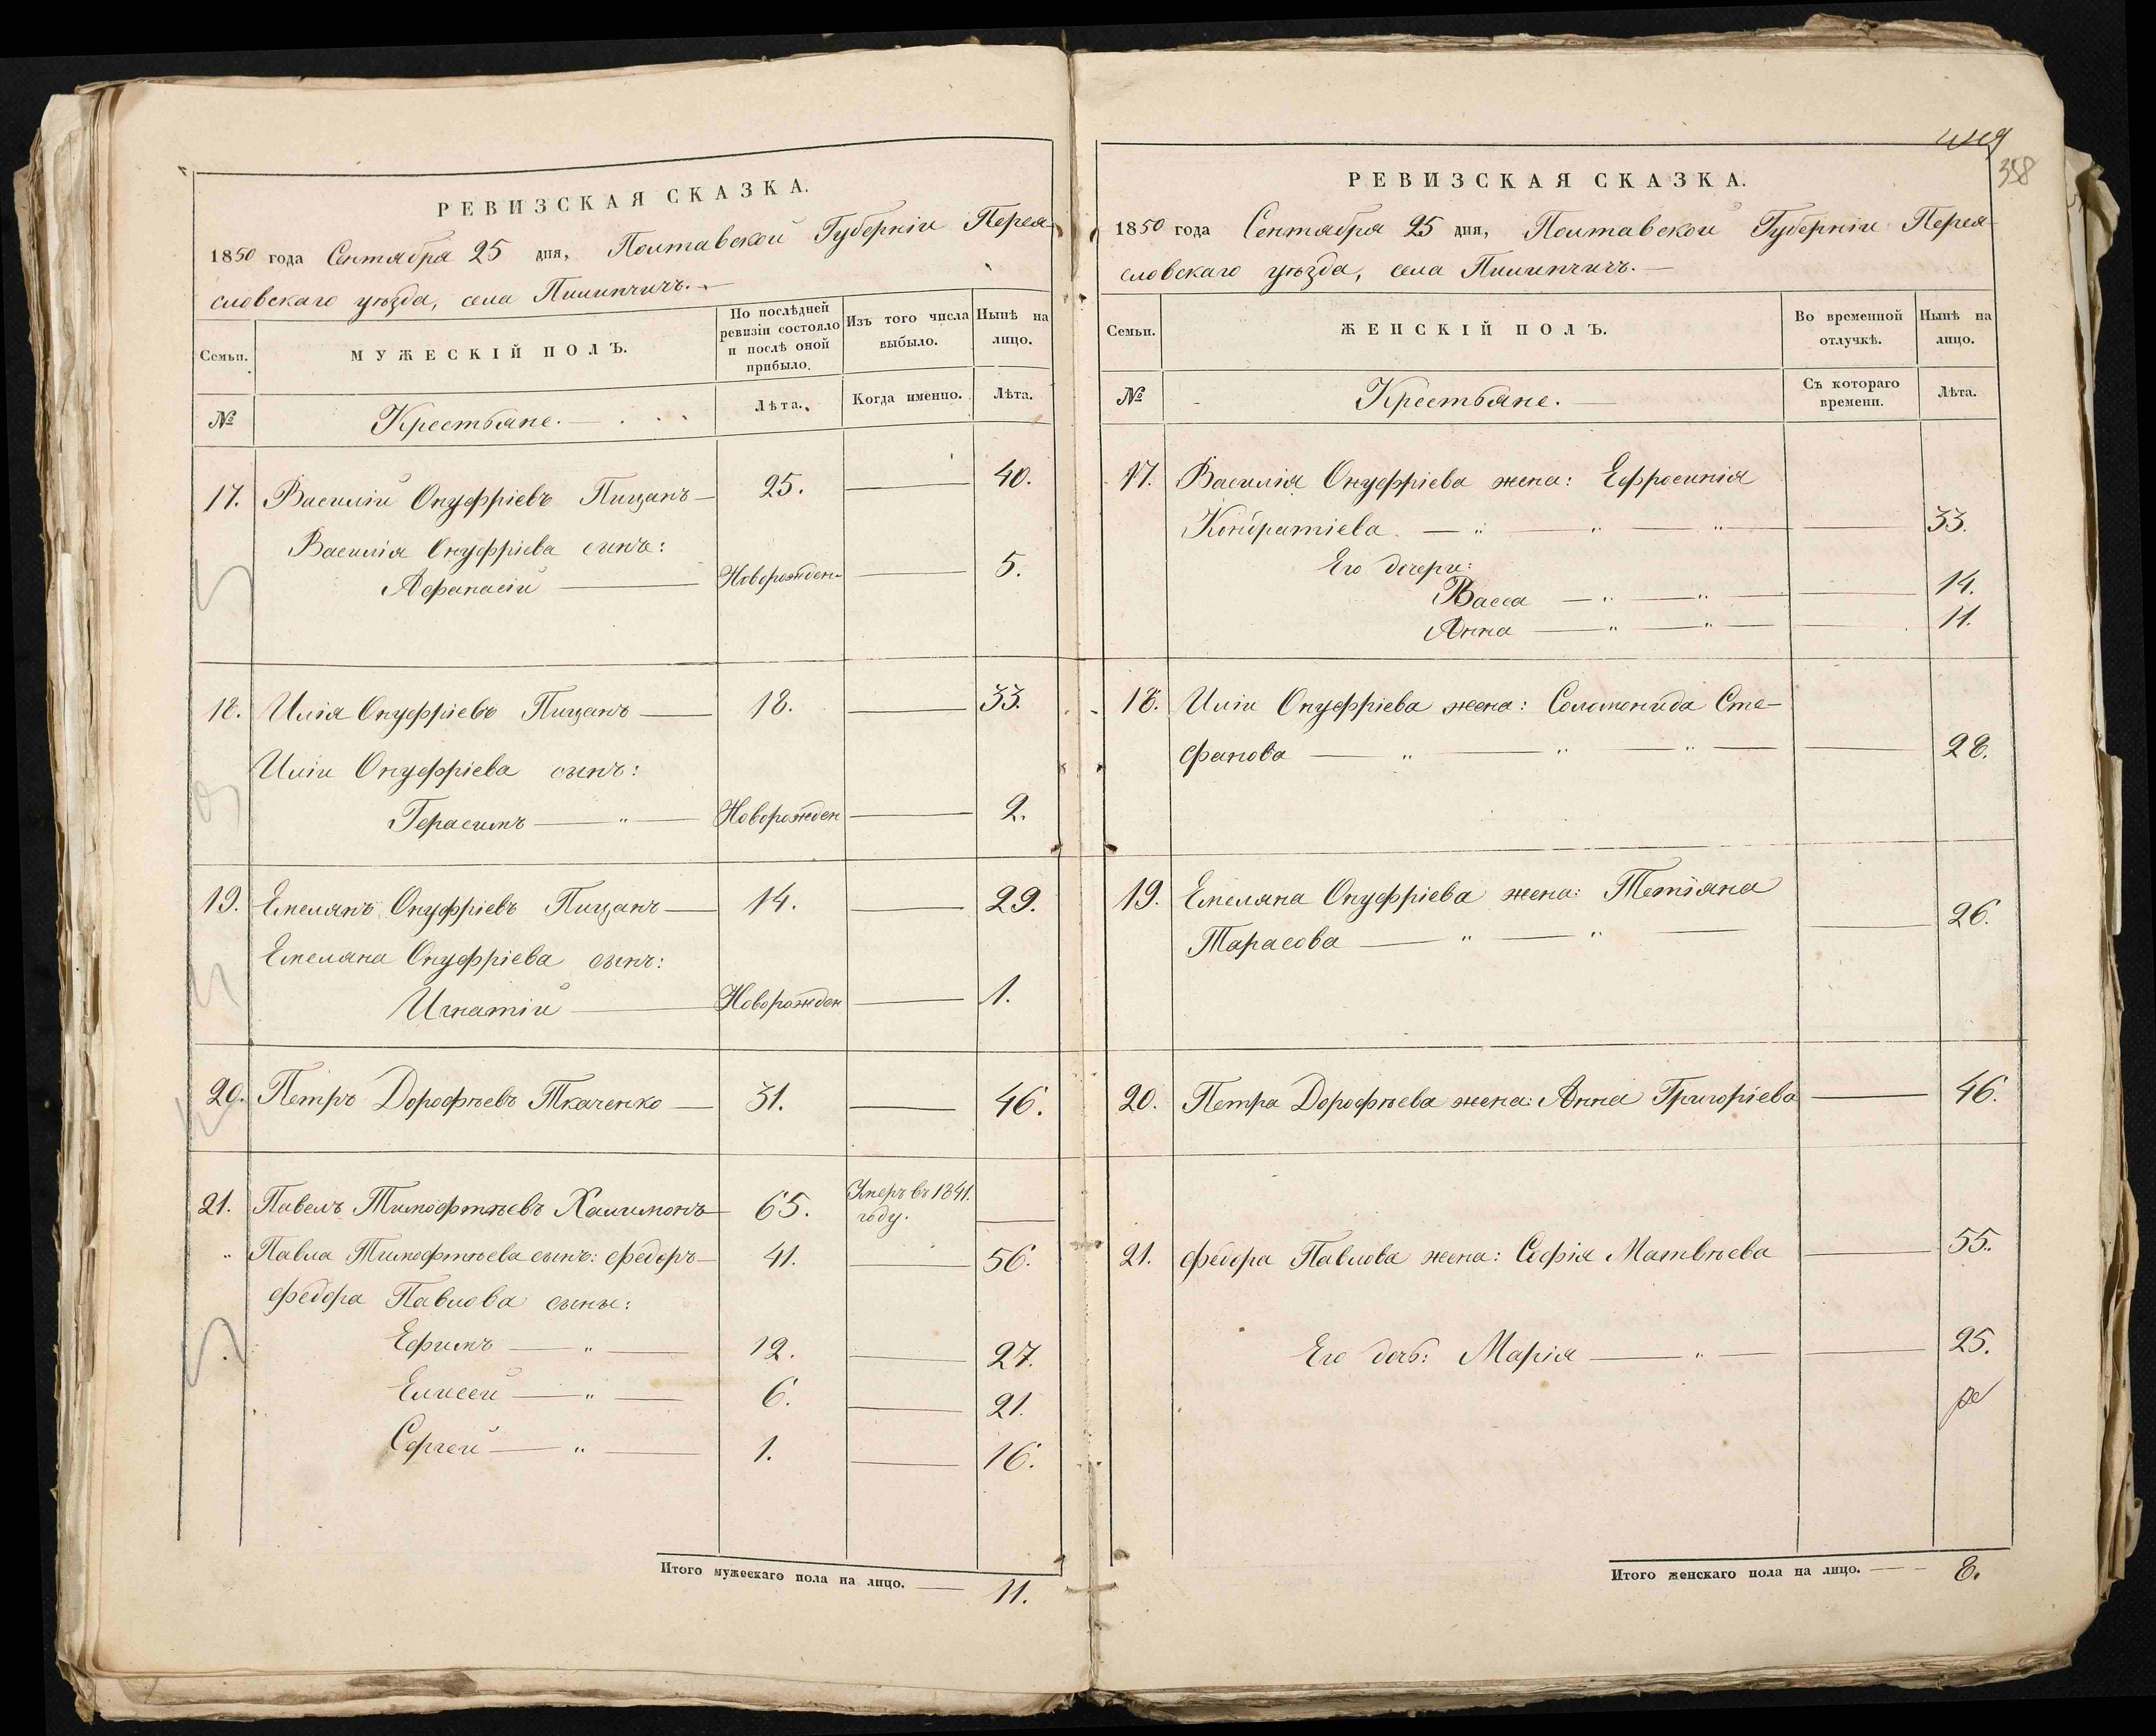 РЕВИЗСКАЯ СКАЗКА.
1850 года Сентября 25 дня, Полтавской Губерніи Перея-
словскаго уѣзда, села Пилипчичъ.
Семьи.
МУЖЕСКІЙ ПОЛЪ.
По послѣдней ревизіи состояло и послѣ оной прибыло.
Изъ того числа выбыло.
Нынѣ на лицо.
№
Крестьяне.
Лѣта.
Когда именно.
Лѣта.
17. Василій Онуфріевъ Пицанъ — 25. — 40.
Василія Онуфріева сынъ:
Афанасій — Новорожден — 5.
18. Илія Онуфріевъ Пицанъ — 18. — 33.
Иліи Онуфріева сынъ:
Герасимъ — " — Новорожден — 2.
19. Емелянъ Онуфріевъ Пицанъ — 14. — 29.
Емеляна Онуфріева сынъ:
Игнатій — Новорожден — 1.
20. Петръ Дорофѣевъ Ткаченко — 31. — 46.
21. Павелъ Тимофтѣевъ Халимонъ — 65. Умеръ въ 1841. году. —
" Павла Тимофтѣева сынъ: Федоръ — 41. — 56.
Федора Павлова сыны:
Ефимъ — " — 12. — 27.
Елисей — " — 6. — 21.
Сергей — " — 1. — 16.
Итого мужескаго пола на лицо. — 11.
358
РЕВИЗСКАЯ СКАЗКА.
1850 года Сентября 25 дня, Полтавской Губерніи Перея-
словскаго уѣзда, села Пилипчичъ. —
Семьи.
ЖЕНСКІЙ ПОЛЪ.
Во временной отлучкѣ.
Нынѣ на лицо.
№
Крестьяне. —
Съ котораго времени.
Лѣта.
17. Василія Онуфріева жена: Ефросинія
Кондратіева — " — " — " — 33.
Его дочери:
Васса — " — " — 14.
Анна — " — " — 11.
18. Иліи Онуфріева жена: Соломонида Сте-
фанова — " — " — " — 28.
19. Емеляна Онуфріева жена: Тетіяна
Тарасова — " — " — 26.
20. Петра Дорофѣева жена: Анна Григоріева — 46.
21. Федора Павлова жена: Софія Матвѣева — 55.
Его дочь: Марія — " — 25.
Итого женскаго пола на лицо. — 8.